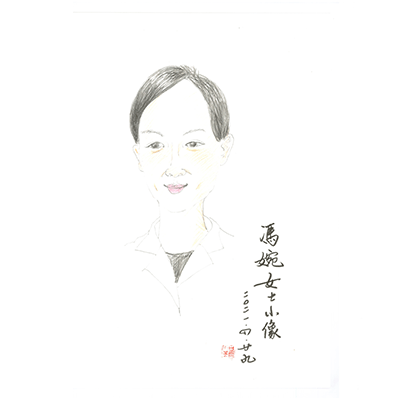 馮婉女士小像
二〇二一.四.廿九